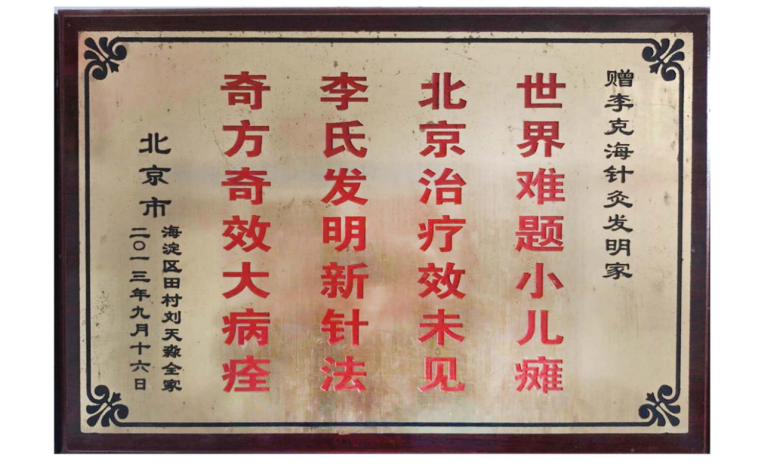 赠李克海针灸发明家
世界难题小儿瘫
北京治疗效未见
李氏发明新针法
奇方奇效大病痊
北京市
海淀区田村刘天淼全家
二〇一三年九月十六日